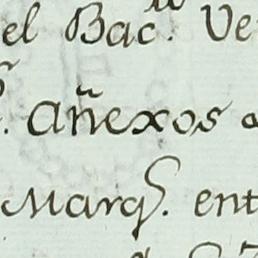 el Bac.
añexos
Marq.s ent